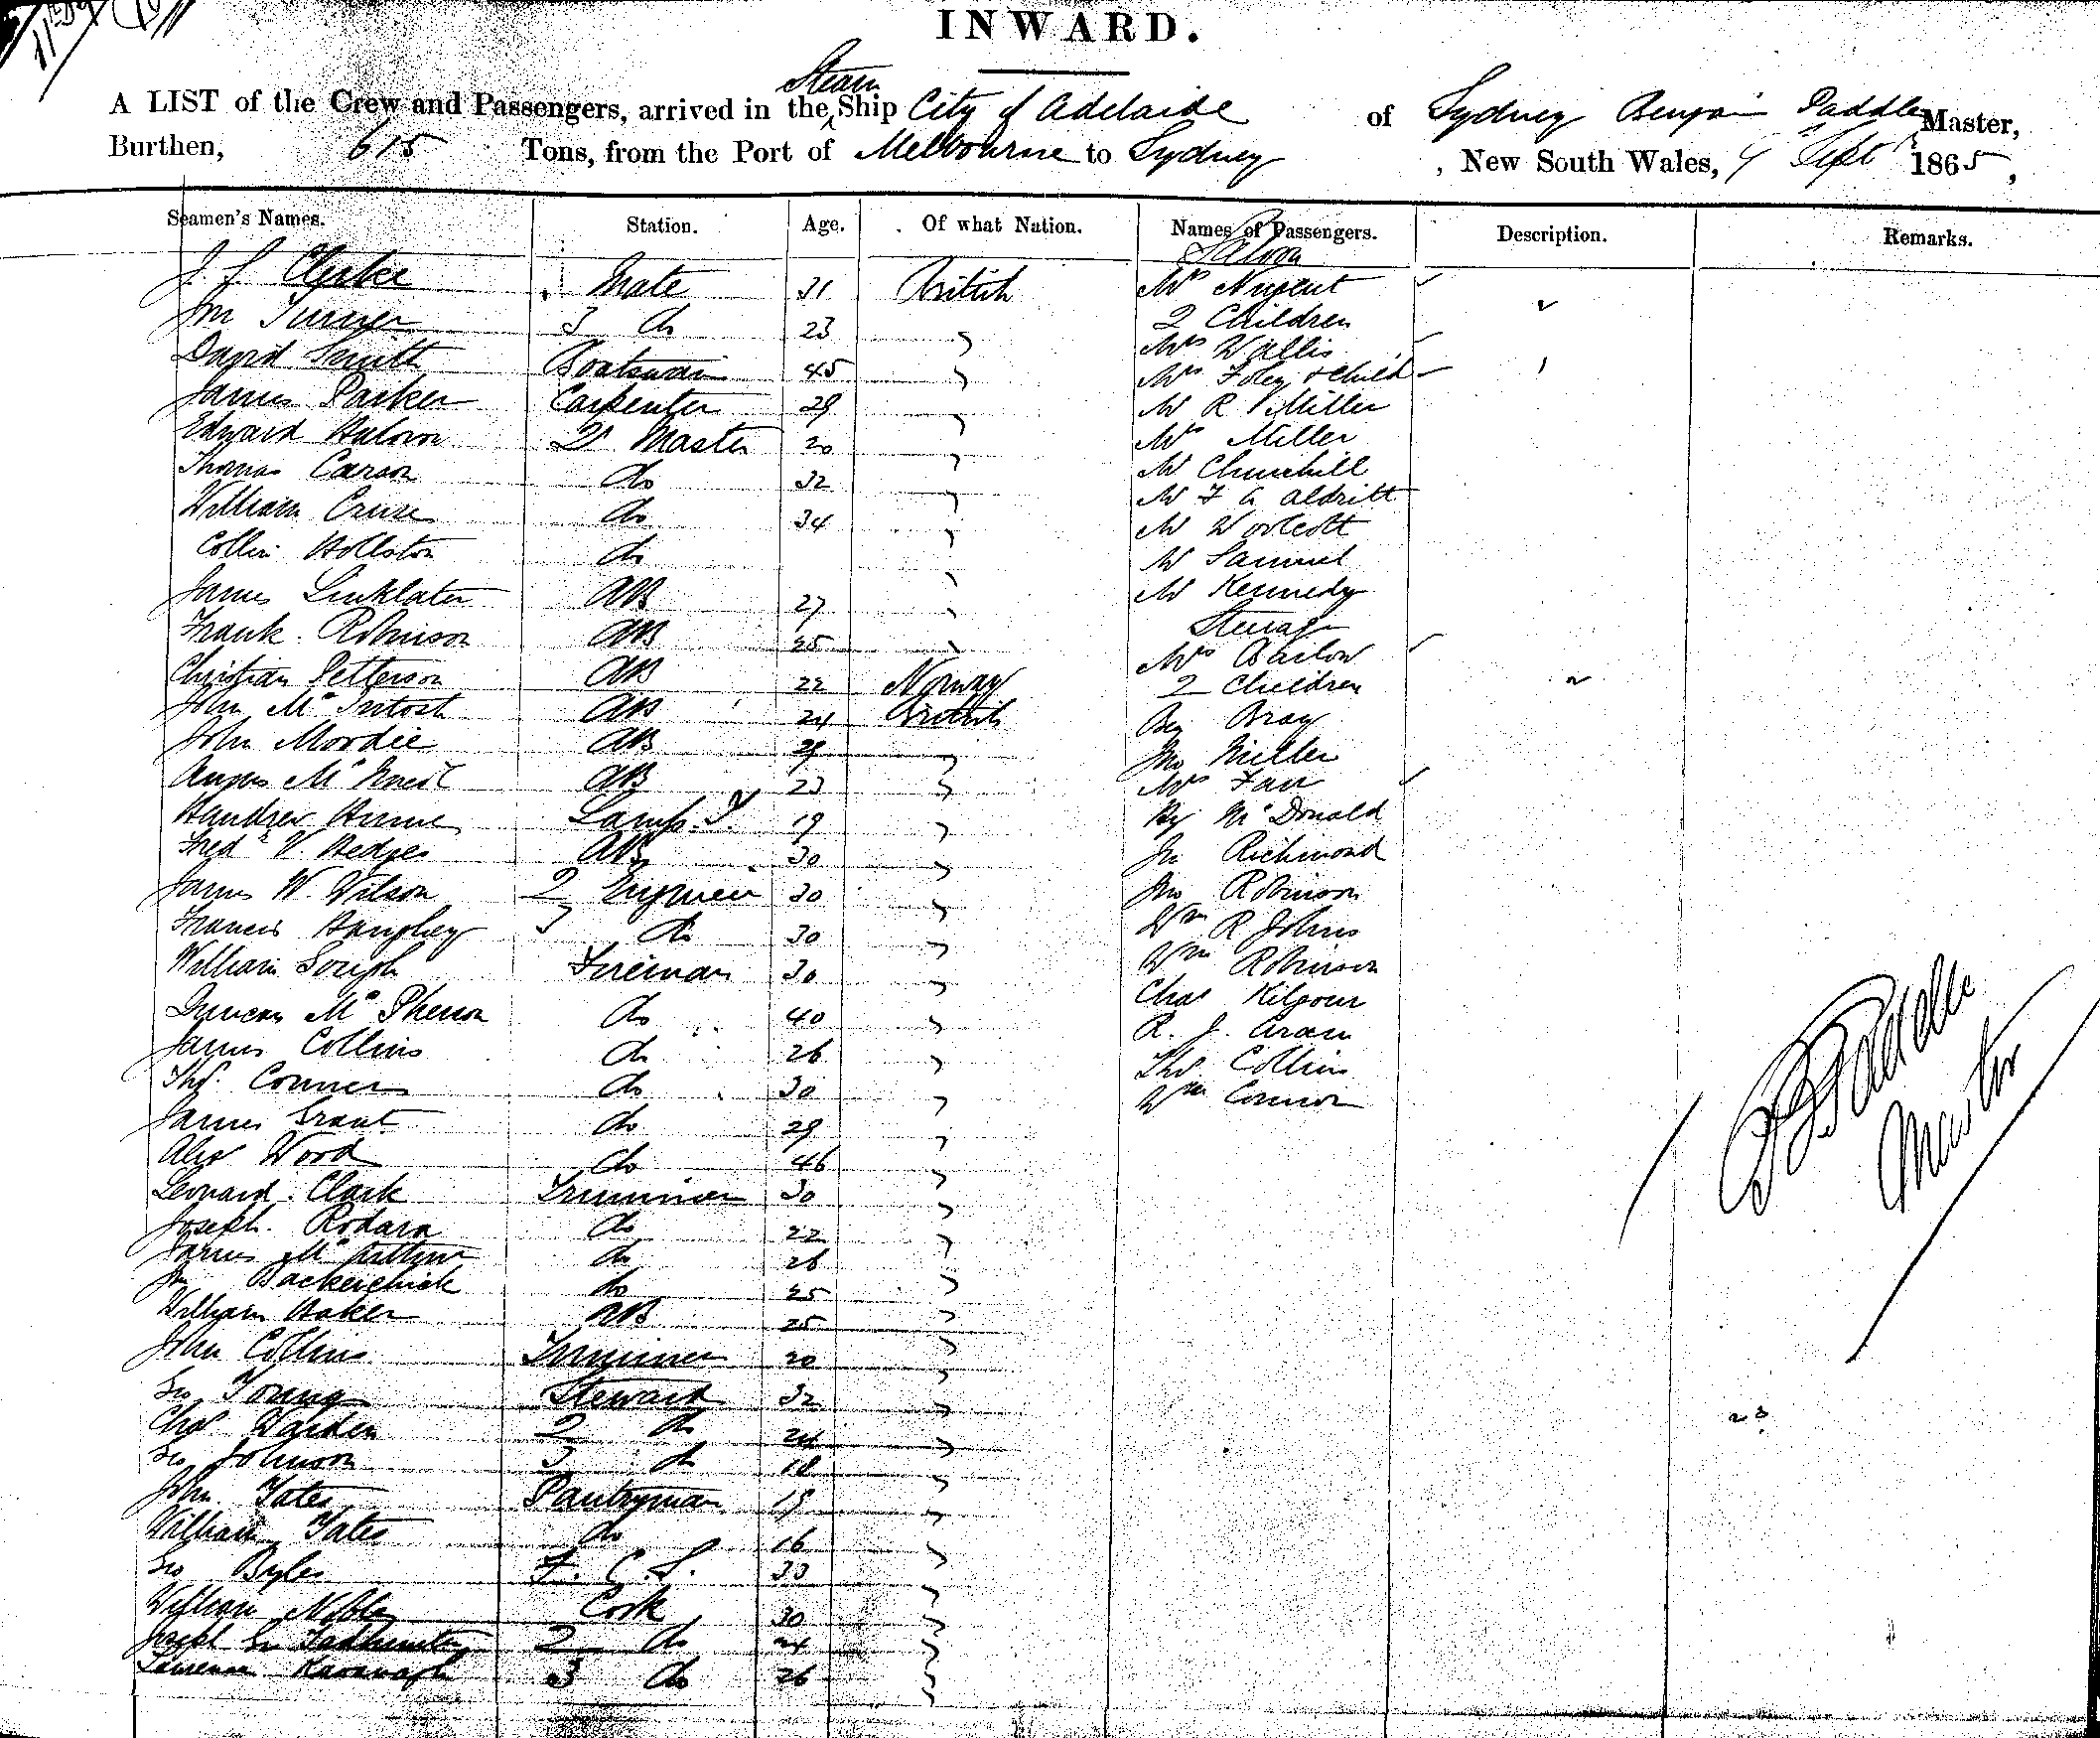 INWARD.
A LIST of the Crew and Passengers, arrived in the Steam Ship City of Adelaide of Sydney Benjn Paddle Master,
Burthen, 615 Tons, from the Port of Melbourne to Sydney, New South Wales, 9 Sept 1865,
Seamen's Names. Station. Age. Of what Nation. Names of Passengers. Description. Remarks.
Saloon
J. S. Clarke Mate 31 British Mrs Nugent
Jno Turner 3 do 23 " 2 Children
David Smith Boatswain 45 " Mrs Wallis
James Parker Carpenter 29 " Mrs Foley & Child
Edward 2r Master 20 " Mr R Miller
Thomas Carson do 32 " Mrs Miller
William Cruise do 34 " Mr Churchill
Collin Hollston do " Mr F A Aldritt
James Linklater AB 27 " Mr Woolcott
Frank Robinson AB 25 " Mr Samuel
Christian Petterson AB 22 Norway Mr Kennedy
John McIntosh AB 24 British Steerage
John Moodie AB 29 " Mrs Barlow
Angus McNeil AB 23 " 2 Children
Handrew Hume Lamp. T. 19 " Bray
Fredk V. Hedges AB 30 " Jno Miller
James W. Wilson 2 Engineer 30 " Mrs Farr
Francis Humphrey 3 do 30 " Hy McDonald
William Fireman 30 " Jn Richmond
Duncan McPherson do 40 " Jno Robinson
James Collins do 26 " Wm R Johns
Thos. Conners do 30 " Wm Robinson
James Grant do 29 " Chas Kilgour
Alex Wood do 46 " R. J.
Leonard Clark Trimmer 30 " Thos Collins
Joseph Rodara do 22 " Wm Connor
James McArthur do 26 "
Jn do 25 "
William Baker AB 25 "
John Collins Trimmer 20 "
Geo Young Steward 32 "
Chas Warden 2 do 24 "
Geo Johnson 3 do 18 "
John Yates Pantryman 19 "
William Yates do 16 "
Geo Byles F. C. S. 33 "
William Noble Cook 30 "
Joseph 2 do 24 "
Lawrence Kavanagh 3 do 26 "
B Paddle
Master